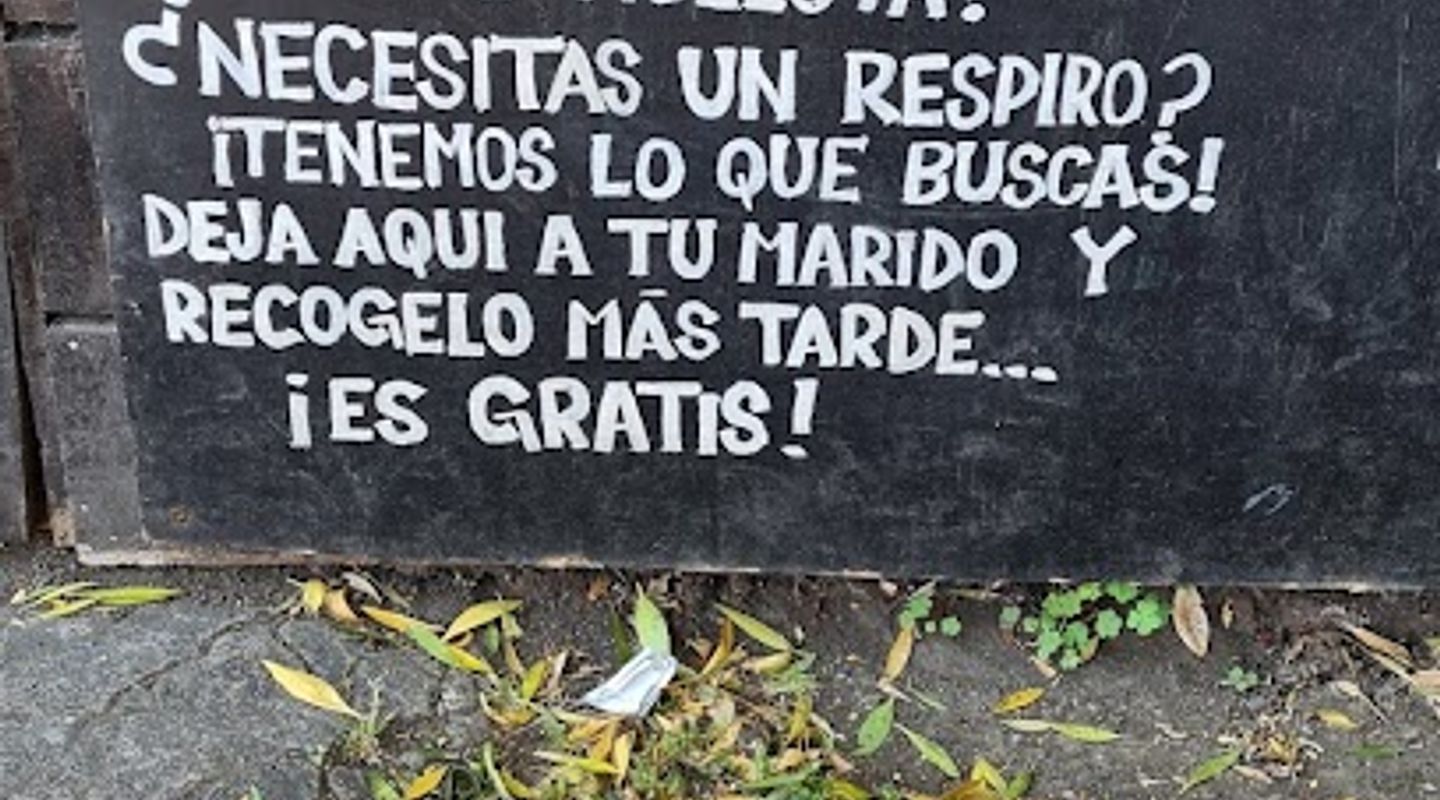 ¿NECESITAS UN RESPIRO?
¡TENEMOS LO QUE BUSCAS!
DEJA AQUI A TU MARIDO Y
RECOGELO MÁS TARDE...
¡ES GRATIS!